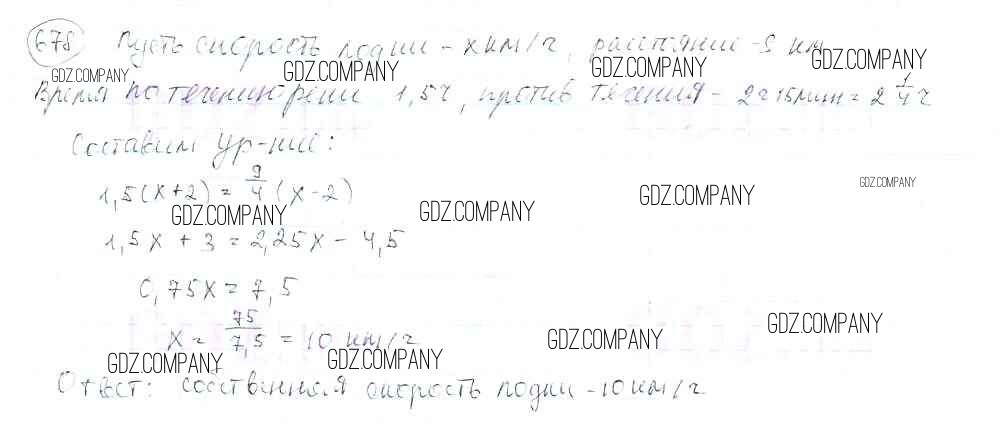 678 Пусть скорость лодки - x км/ч, расстояние - S км
GDZ.COMPANY GDZ.COMPANY GDZ.COMPANY GDZ.COMPANY
Время по течению реки 1,5 ч, против течения - 2 ч 15 мин = 2 1/4 ч
Составим ур-ние:
1,5(x+2) = 9/4 (x-2)
GDZ.COMPANY GDZ.COMPANY GDZ.COMPANY GDZ.COMPANY
1,5x + 3 = 2,25x - 4,5
0,75x = 7,5
x = 75/7,5 = 10 км/ч
GDZ.COMPANY GDZ.COMPANY GDZ.COMPANY GDZ.COMPANY
Ответ: собственная скорость лодки - 10 км/ч